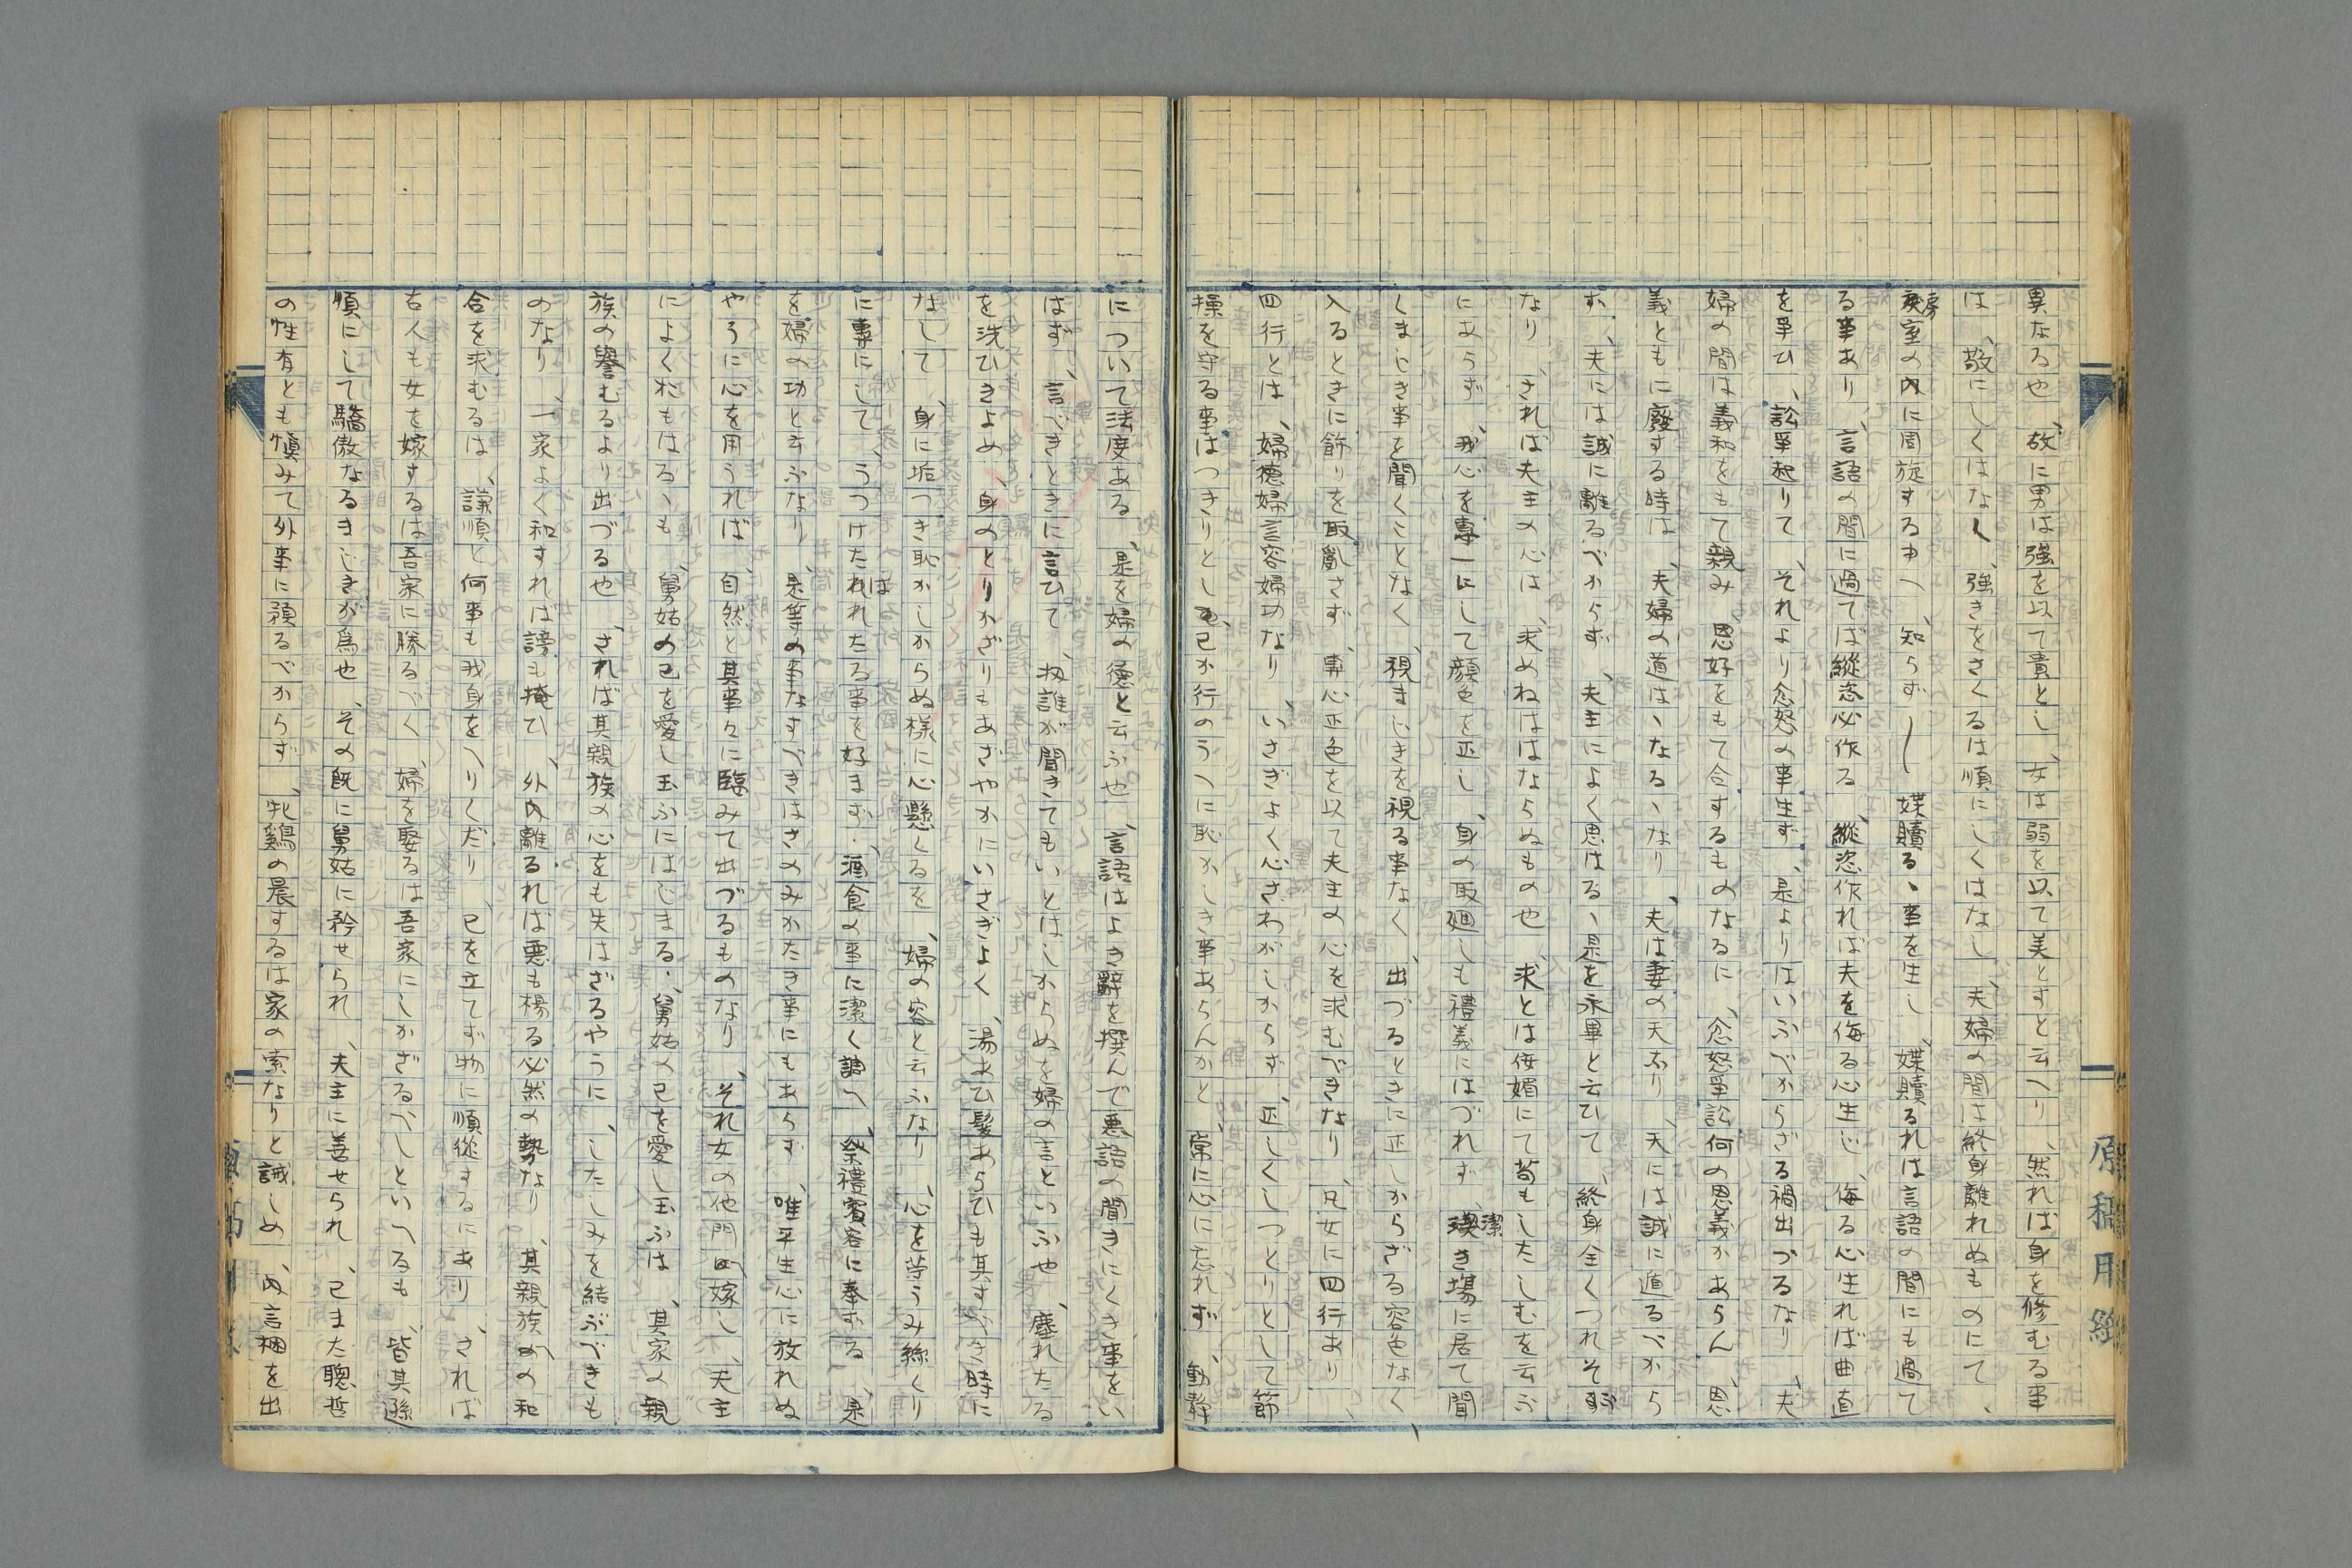 異なる也、故に男は強を以て貴とし、女は弱を以て美とすと云へり、然れば身を修むる事
は、敬にしくはなく、強きをさくるは順にしくはなし、夫婦の間は終身離れぬものにて、
房室の内に周旋するまへ、知らず〳〵媟黷るゝ事を生し、媟黷るれは言語の間にも過て
る事あり、言語の間に過てば縦恣必作る、縦恣作れば夫を侮る心生じ、侮る心生れば曲直
を爭ひ、訟爭起りて、それより忿怒の事生ず、是よりはいふべからざる禍出づるなり、夫
婦の間は義和をもて親み、恩好をもて合するものなるに、忿怒爭訟何の恩義かあらん、恩
義ともに廢する時は、夫婦の道はゝなるゝなり、夫は妻の天なり、天には誠に遁るべから
ず、夫には誠に離るべからず、夫主によく思はるゝ是を永畢と云ひて、終身全くつれそふ
なり、されば夫主の心は、求めねばはならぬもの也、求とは侫媚にて苟もしたしむを云ふ
にあらず、我心を專一にして顔色を正し、身の取廻しも禮義にはづれず、潔き場に居て聞
くまじき事を聞くことなく、視まじきを視る事なく、出づるときに正しからざる容色なく
入るときに飾りを取亂さず、專心正色を以て夫主の心を求むべきなり、凡女に四行あり、
四行とは、婦徳婦言容婦功なり、いさぎよく心さわがしからず、正しくしつとりとして節
操を守る事はつきりとし、己か行のうへに恥かしき事あらんかと、常に心に忘れず、動靜
について法度ある、是を婦の徳と云ふや、言語はよき辭を撰んで悪語の聞きにくき事をい
はず、言べきときに言ひて、扨誰が聞きてもいとはしからぬを婦の言といふや、塵れたる
を洗ひきよめ、身のとりかざりもあざやかにいさぎよく、湯あひ髪あらひも其すべき時に
なして、身に垢つき恥かしからぬ様に心懸くるを、婦の容と云ふなり、心を苧うみ絲くり
に專にして、うつけたはれたる事を好まず、酒食の事に潔く調へ、祭禮賓客に奉ずる、是
を婦の功と云ふなり、是等の事なすべきはさのみかたき事にもあらず、唯平生心に放れぬ
やうに心を用うれば、自然と其事々に臨みて出づるものなり、それ女の他門に嫁し、夫主
によく思はるゝも、舅姑の己を愛し玉ふにはじまる、舅姑の己を愛し玉ふは、其家の親
族の譽むるより出づる也、されば其親族の心をも失はざるやうに、したしみを結ぶべきも
のなり、一家よく和すれば謗も掩ひ、外内離るれば悪も楊る必然の勢なり、其親族への和
合を求むるは、謙順と何事も我身をへりくだり、己を立てず物に順從するにあり、されば
古人も女を嫁するは吾家に勝るべく、婦を娶るは吾家にしかざるべしといへるも、皆其遜
順にして驕傲なるまじきが爲也、その既に舅姑に矜せられ、夫主に善せられ、己また聰哲
の性有とも愼みて外事に預るべからず、牝鶏の晨するは家の索なりと誡しめ、内言梱を出
原稿用紙